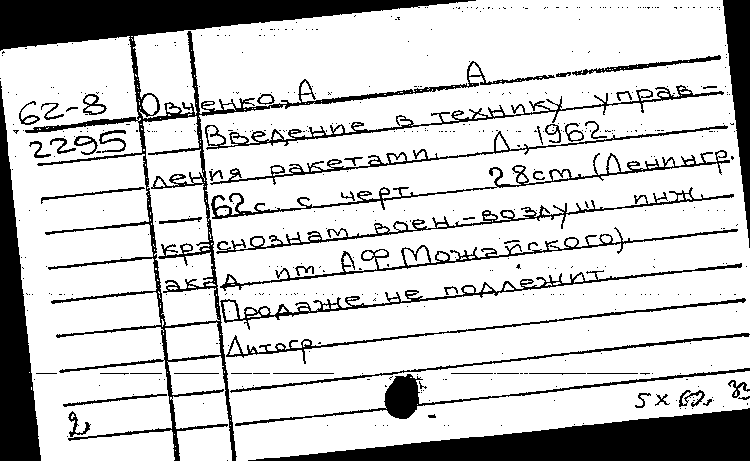 62-8 Овченко, А А
2295 Введение в технику управ-
ления ракетами. Л., 1962.
62с. с черт. 28см. (Ленингр.
краснознам. воен.-воздуш. инж.
акад им. А.Ф. Можайского).
Продаже не подлежит.
Литогр.
2, 5 x 62,